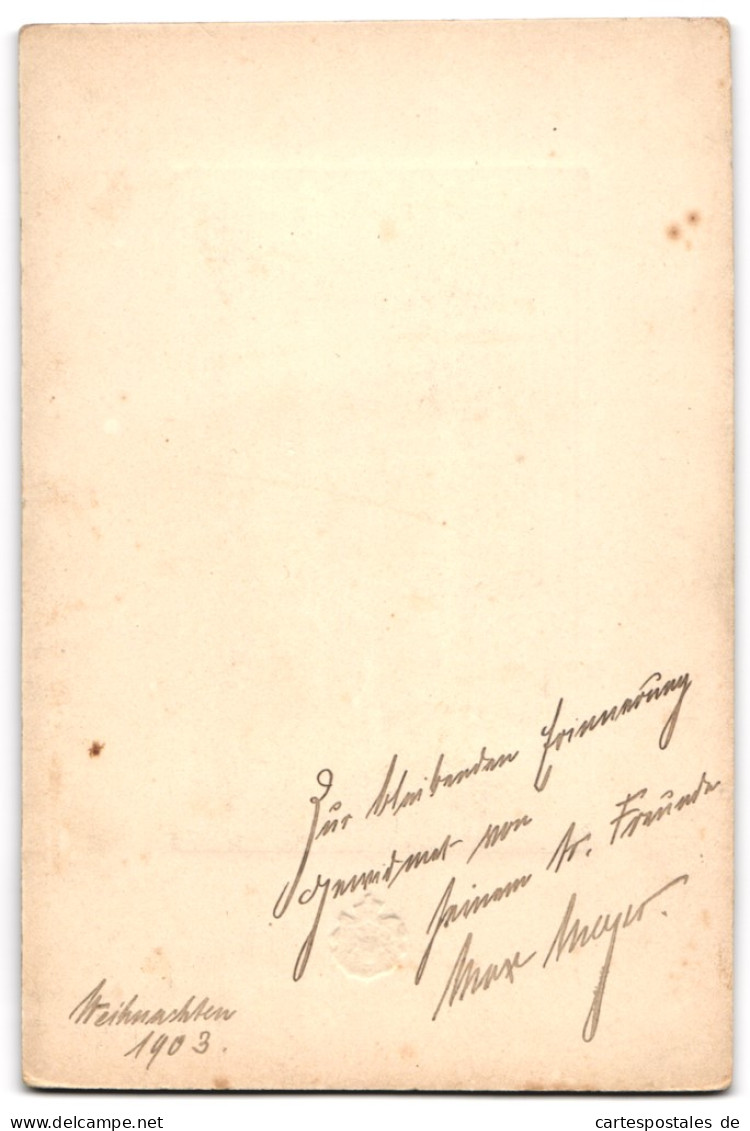 Zur bleibenden Erinnerung
gewidmet von
seinem tr. Freunde
Max Meyer.
Weihnachten
1903.
delcampe.net
cartespostales de